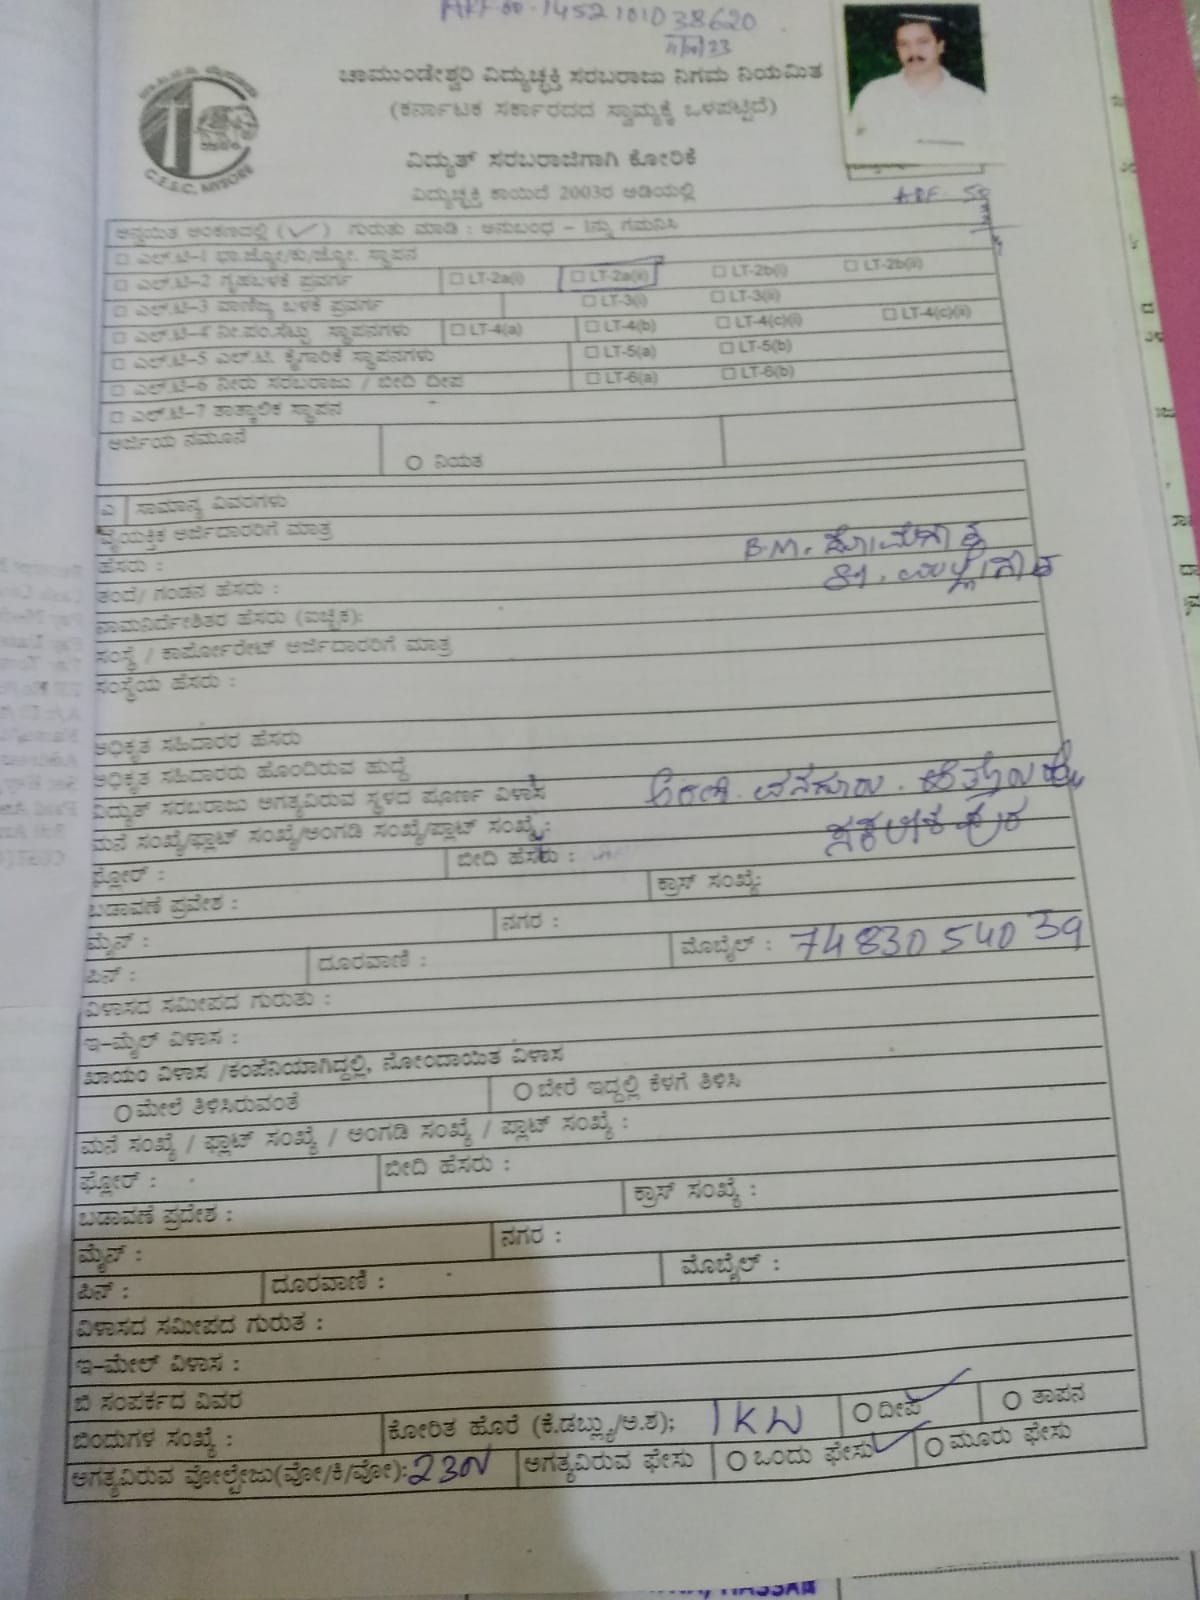 1452101038620
C.E.S.C. MYSORE
ಚಾಮುಂಡೇಶ್ವರಿ ವಿದ್ಯುಚ್ಛಕ್ತಿ ಸರಬರಾಜು ನಿಗಮ ನಿಯಮಿತ
(ಕರ್ನಾಟಕ ಸರ್ಕಾರದದ ಸ್ವಾಮ್ಯಕ್ಕೆ ಒಳಪಟ್ಟಿದೆ)
ವಿದ್ಯುತ್ ಸರಬರಾಜಿಗಾಗಿ ಕೋರಿಕೆ
ವಿದ್ಯುಚ್ಛಕ್ತಿ ಕಾಯಿದೆ 2003ರ ಅಡಿಯಲ್ಲಿ
ಅನ್ವಯಿತ ಅಂಕಣದಲ್ಲಿ (✓) ಗುರುತು ಮಾಡಿ : ಅನುಬಂಧ – 1ನ್ನು ಗಮನಿಸಿ
□ ಎಲ್.ಟಿ–1 ಭಾ.ಜ್ಯೋ/ಕು/ಜ್ಯೋ. ಸ್ಥಾಪನ
□ ಎಲ್.ಟಿ–2 ಗೃಹಬಳಕೆ ಪ್ರವರ್ಗ □ LT-2a(i) □ LT-2a(ii) □ LT-2b(i) □ LT-2b(ii)
□ ಎಲ್.ಟಿ–3 ವಾಣಿಜ್ಯ ಬಳಕೆ ಪ್ರವರ್ಗ □ LT-3(i) □ LT-3(ii)
□ ಎಲ್.ಟಿ–4 ನೀ.ಪಂ.ಸೆಟ್ಟು ಸ್ಥಾಪನಗಳು □ LT-4(a) □ LT-4(b) □ LT-4(c)(i) □ LT-4(c)(ii)
□ ಎಲ್.ಟಿ–5 ಎಲ್.ಟಿ. ಕೈಗಾರಿಕೆ ಸ್ಥಾಪನಗಳು □ LT-5(a) □ LT-5(b)
□ ಎಲ್.ಟಿ–6 ನೀರು ಸರಬರಾಜು / ಬೀದಿ ದೀಪ □ LT-6(a) □ LT-6(b)
□ ಎಲ್.ಟಿ–7 ತಾತ್ಕಾಲಿಕ ಸ್ಥಾಪನ
ಅರ್ಜಿಯ ನಮೂನೆ ○ ನಿಯತ
ಎ ಸಾಮಾನ್ಯ ವಿವರಗಳು
ವೈಯಕ್ತಿಕ ಅರ್ಜಿದಾರರಿಗೆ ಮಾತ್ರ
ಹೆಸರು : B.M.
ತಂದೆ/ ಗಂಡನ ಹೆಸರು :
ನಾಮನಿರ್ದೇಶಿತರ ಹೆಸರು (ಐಚ್ಛಿಕ):
ಸಂಸ್ಥೆ / ಕಾರ್ಪೋರೇಟ್ ಅರ್ಜಿದಾರರಿಗೆ ಮಾತ್ರ
ಸಂಸ್ಥೆಯ ಹೆಸರು :
ಅಧಿಕೃತ ಸಹಿದಾರರ ಹೆಸರು
ಅಧಿಕೃತ ಸಹಿದಾರರು ಹೊಂದಿರುವ ಹುದ್ದೆ
ವಿದ್ಯುತ್ ಸರಬರಾಜು ಅಗತ್ಯವಿರುವ ಸ್ಥಳದ ಪೂರ್ಣ ವಿಳಾಸ
ಮನೆ ಸಂಖ್ಯೆ/ಫ್ಲಾಟ್ ಸಂಖ್ಯೆ/ಅಂಗಡಿ ಸಂಖ್ಯೆ/ಪ್ಲಾಟ್ ಸಂಖ್ಯೆ:
ಫ್ಲೋರ್ : ಬೀದಿ ಹೆಸರು :
ಬಡಾವಣೆ ಪ್ರವೇಶ : ಕ್ರಾಸ್ ಸಂಖ್ಯೆ:
ಮೈನ್ : ನಗರ :
ಪಿನ್ : ದೂರವಾಣಿ : ಮೊಬೈಲ್ : 7483054039
ವಿಳಾಸದ ಸಮೀಪದ ಗುರುತು :
ಇ–ಮೈಲ್ ವಿಳಾಸ :
ಖಾಯಂ ವಿಳಾಸ /ಕಂಪೆನಿಯಾಗಿದ್ದಲ್ಲಿ, ನೋಂದಾಯಿತ ವಿಳಾಸ
○ ಮೇಲೆ ತಿಳಿಸಿರುವಂತೆ ○ ಬೇರೆ ಇದ್ದಲ್ಲಿ ಕೆಳಗೆ ತಿಳಿಸಿ
ಮನೆ ಸಂಖ್ಯೆ / ಫ್ಲಾಟ್ ಸಂಖ್ಯೆ / ಅಂಗಡಿ ಸಂಖ್ಯೆ / ಪ್ಲಾಟ್ ಸಂಖ್ಯೆ :
ಫ್ಲೋರ್ : ಬೀದಿ ಹೆಸರು :
ಬಡಾವಣೆ ಪ್ರದೇಶ : ಕ್ರಾಸ್ ಸಂಖ್ಯೆ :
ಮೈನ್ : ನಗರ :
ಪಿನ್ : ದೂರವಾಣಿ : ಮೊಬೈಲ್ :
ವಿಳಾಸದ ಸಮೀಪದ ಗುರುತ :
ಇ–ಮೇಲ್ ವಿಳಾಸ :
ಬಿ ಸಂಪರ್ಕದ ವಿವರ
ಬಿಂದುಗಳ ಸಂಖ್ಯೆ : ಕೋರಿತ ಹೊರೆ (ಕೆ.ಡಬ್ಲ್ಯು/ಅ.ಶ); 1 KW ○ ದೀಪ ○ ತಾಪನ
ಅಗತ್ಯವಿರುವ ವೋಲ್ಟೇಜು(ವೋ/ಕಿ/ವೋ): 230V ಅಗತ್ಯವಿರುವ ಫೇಸು ○ ಒಂದು ಫೇಸು ○ ಮೂರು ಫೇಸು
HASSAN